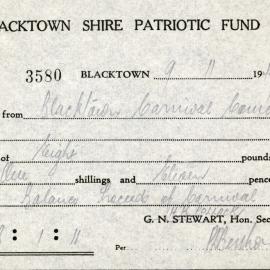 LACKTOWN SHIRE PATRIOTIC FUND
3580 BLACKTOWN 9 11 194
from Blacktown Carnival
of Eight pounds
shillings and Eleven pence
Balance Proceeds of Carnival
G. N. STEWART, Hon. Sec
8 : 1 : 11
Per